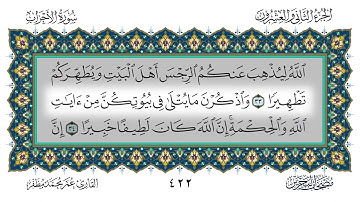 الجزء الثاني والعشرون
سورة الأحزاب
ٱللَّهُ لِيُذْهِبَ عَنكُمُ ٱلرِّجْسَ أَهْلَ ٱلْبَيْتِ وَيُطَهِّرَكُمْ
تَطْهِيرًا ٣٣ وَٱذْكُرْنَ مَا يُتْلَىٰ فِى بُيُوتِكُنَّ مِنْ ءَايَٰتِ
ٱللَّهِ وَٱلْحِكْمَةِ ۚ إِنَّ ٱللَّهَ كَانَ لَطِيفًا خَبِيرًا ٣٤ إِنَّ
٤٢٢
القارئ عمر محمد مظفر